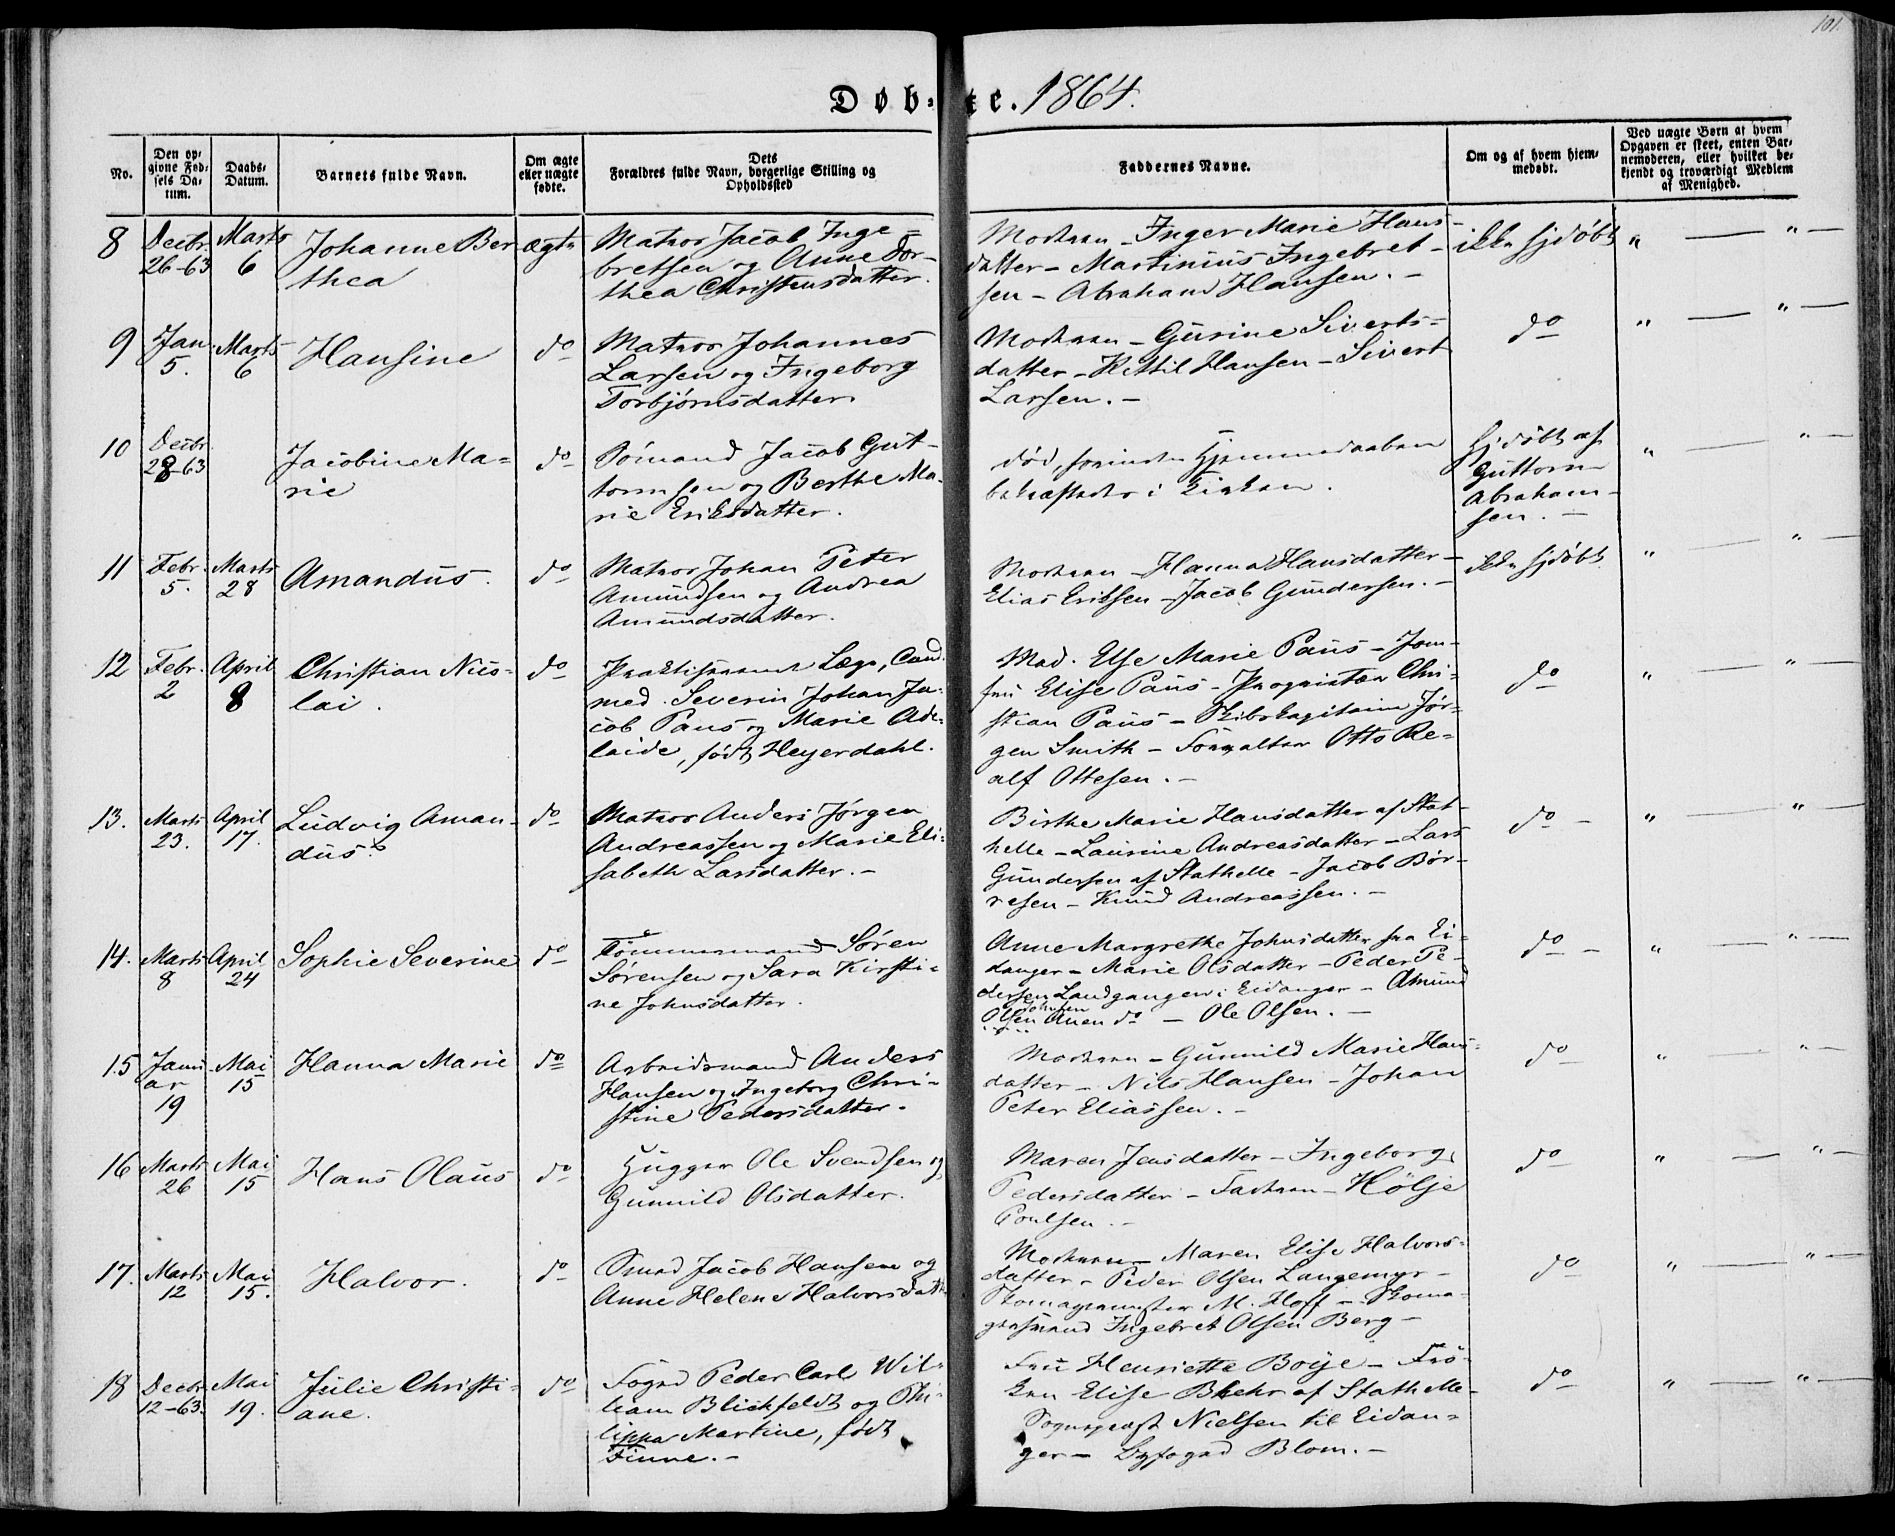 101.
Døb=te. 1864.
No.
Den op=
givne Fød=
sels Da=
tum.
Daabs=
Datum.
Barnets fulde Navn.
Om ægte
eller uægte
fødte.
Dets
Forældres fulde Navn, borgerlige Stilling og
Opholdssted
Faddernes Navne.
Om og af hvem hjem=
medøbt.
Ved uægte Børn af hvem
Opgaven er skeet, enten Bar=
nemoderen, eller hvilket be=
kjendt og troværdigt Medlem
af Menighed.
8
Decbr
26-63
Marts
6
Johanne Ber
thea
ægte
Matros Jacob Inge=
bretsen og Anne Dor-
thea Christensdatter.
Moderen - Inger Marie Hans-
datter - Martinius Ingebret-
sen - Abraham Hansen. -
ikke hjdøbt
" — " —
9
Jan.
5.
Marts
6
Hansine
do
Matros Johannes
Larsen og Ingeborg
Torbjørnsdatter.
Moderen - Gurine Siverts=
datter - Kittil Hansen - Sivert
Larsen. -
do
" — " —
10
Decbr
28-63
Jacobine Ma=
rie
do
Sømand Jacob Gut-
tormsen og Berthe Ma-
rie Eriksdatter.
død, forinden Hjemmedaaben
bekræftedes i Kirken.
Hjdøbt af
Guttorm
Abraham-
sen. -
" — " —
11
Febr.
5.
Marts
28
Amandus.
do
Matros Johan Peter
Amundsen og Andrea
Amundsdatter.
Moderen - Hanna Hansdatter -
Elias Eriksen - Jacob Gundersen. -
ikke hjdøbt
" — " —
12
Febr.
2
April
8
Christian Nico-
lai.
do
Praktiserende Læge, Cand.
med. Severin Johan Ja-
cob Paus og Marie Ade-
laide, født Heyerdahl.
Mad. Else Marie Paus - Jom-
fru Elise Paus - Proprietær Chri-
stian Paus - Skibskapitaine Jør-
gen Smith - Forvalter Otto Re-
alf Ottesen. -
do
" — " —
13.
Marts
23.
April
17.
Ludvig Aman-
dus.
do
Matros Anders Jørgen
Andreassen og Marie Eli-
sabeth Larsdatter. -
Birthe Marie Hansdatter af Stat-
helle - Laurine Andreasdatter - Lars
Gundersen af Stathelle - Jacob Bør-
resen - Knud Andreassen. -
do -
" — " —
14.
Marts
8
April
24
Sophie Severine
do
Tømmermand Søren
Sørensen og Sara Kirsti-
ne Johnsdatter.
Anne Margrethe Johnsdatter fra Ei-
danger - Marie Olsdatter - Peder Pe-
dersen Landgangen i Eidanger - Amund
Johnsen
Olsen Auen do - Ole Olsen. -
do -
" — " —
15
Janu
ar
19
Mai
15
Hanna Marie
do
Arbeidsmand Anders
Hansen og Ingeborg Chri-
stine Pedersdatter.
Moderen - Gunnild Marie Hans-
datter - Nils Hansen - Johan
Peter Eliassen. -
do
" — " —
16
Marts
26
Mai
15
Hans Olaus
do
Hugger Ole Svendsen og
Gunnild Olsdatter.
Maren Jensdatter - Ingeborg
Pedersdatter - Faderen - Hölje
Poulsen. -
do
" — " —
17.
Marts
12
Mai
15.
Halvor.
do
Smed Jacob Hansen og
Anne Helene Halvorsdatt
Moderen - Maren Elise Halvors-
datter - Peder Olsen Langemyr -
Skomagermester M. Hoff - Skoma-
gersvend Ingebret Olsen Berg -
do
" — " —
18
Decbr
12-63.
Mai
19.
Julie Christi-
ane.
do
Foged Peder Carl Wil-
liam Blichfeldt og Phi-
lippa Martine, født
Finne. -
Fru Henriette Boye - Frø-
ken Elise Blehr af Stathelle -
Sogneprest Nielsen til Eidan-
ger - Byfoged Blom. -
do
" — " —